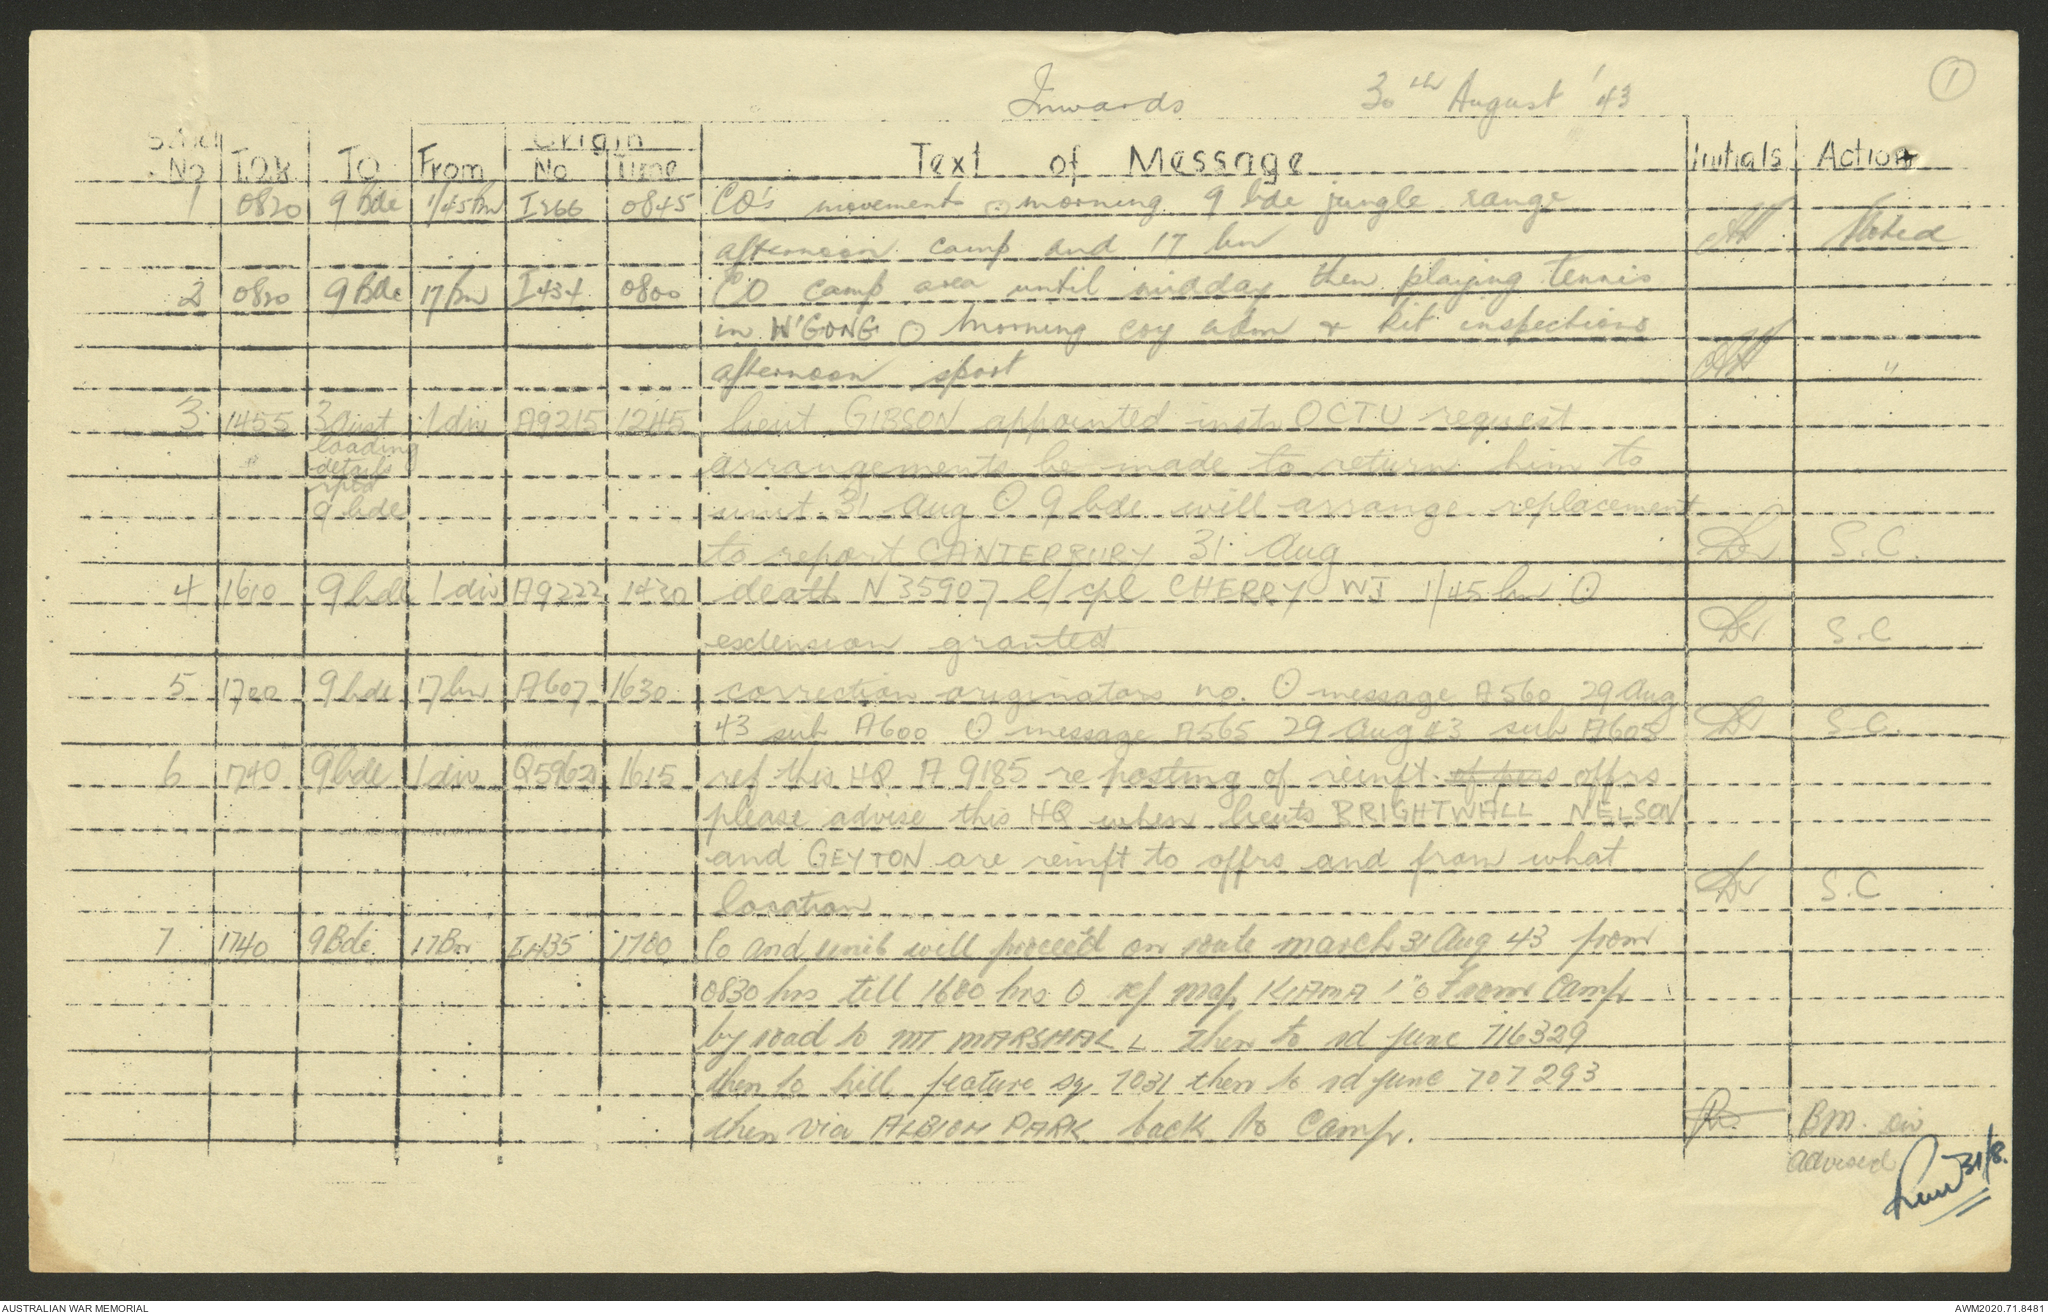 1
Inwards 30th August '43
Serial No T.O.R. TO From Origin No Time Text of Message Initials Action
1 0820 9 Bde 1/45 Bn I266 0845 CO's movements O morning 9 bde jungle range
afternoon camp and 17 bn Noted
2 0820 9 Bde 17 Bn I434 0800 CO camp area until midday then playing tennis
in W'GONG O Morning coy adm & kit inspections
afternoon sport "
3 1455 3 aust 1 div A9215 1245 lieut GIBSON appointed instr OCTU request
loading
" details arrangements be made to return him to
rptd
9 bde unit 31 Aug O 9 bde will arrange replacement
to report CANTERBURY 31 Aug S.C.
4 1610 9 bde 1 div A9222 1430 death N35907 l/cpl CHERRY WJ 1/45 bn O
extension granted S.C
5 1700 9 bde 17 bn A607 1630 correction originators no. O message A560 29 Aug
43 sub A600 O message A565 29 Aug 43 sub A605 S.C.
6 1740 9 bde 1 div 1615 ref this HQ A 9185 re posting of reinft of pers offrs
please advise this HQ when lieuts BRIGHTWALL NELSON
and GEYTON are reinft to offrs and from what
location S.C
7 1740 9 Bde 17 Bn I435 1700 Co and unit will proceed on route march 31 Aug 43 from
0830 hrs till 1600 hrs O ref map KIAMA 1" O From Camp
by road to MT MARSHALL then to rd junc 716329
then to hill feature sq 7031 then to rd junc 707293
then via ALBION PARK back to Camp. BM. div
advised
31/8.
AUSTRALIAN WAR MEMORIAL AWM2020.71.8481